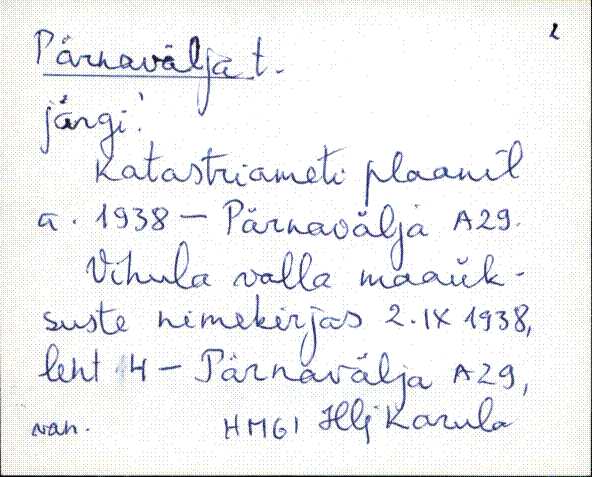 2
Pärnavälja t.
järgi!
Katastriameti plaanil
a. 1938 – Pärnavälja A29.
Vihula valla maaük-
suste nimekirjas 2.IX 1938,
leht 14 – Pärnavälja A29,
van. HMG1 Hlj Karula